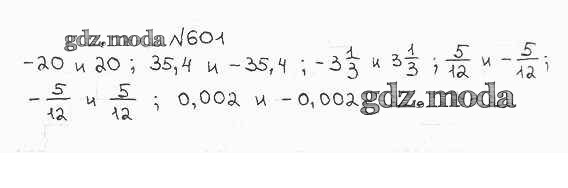 gdz.moda №601
-20 и 20 ; 35,4 и -35,4 ; -3 1/3 и 3 1/3 ; 5/12 и -5/12 ;
-5/12 и 5/12 ; 0,002 и -0,002 gdz.moda